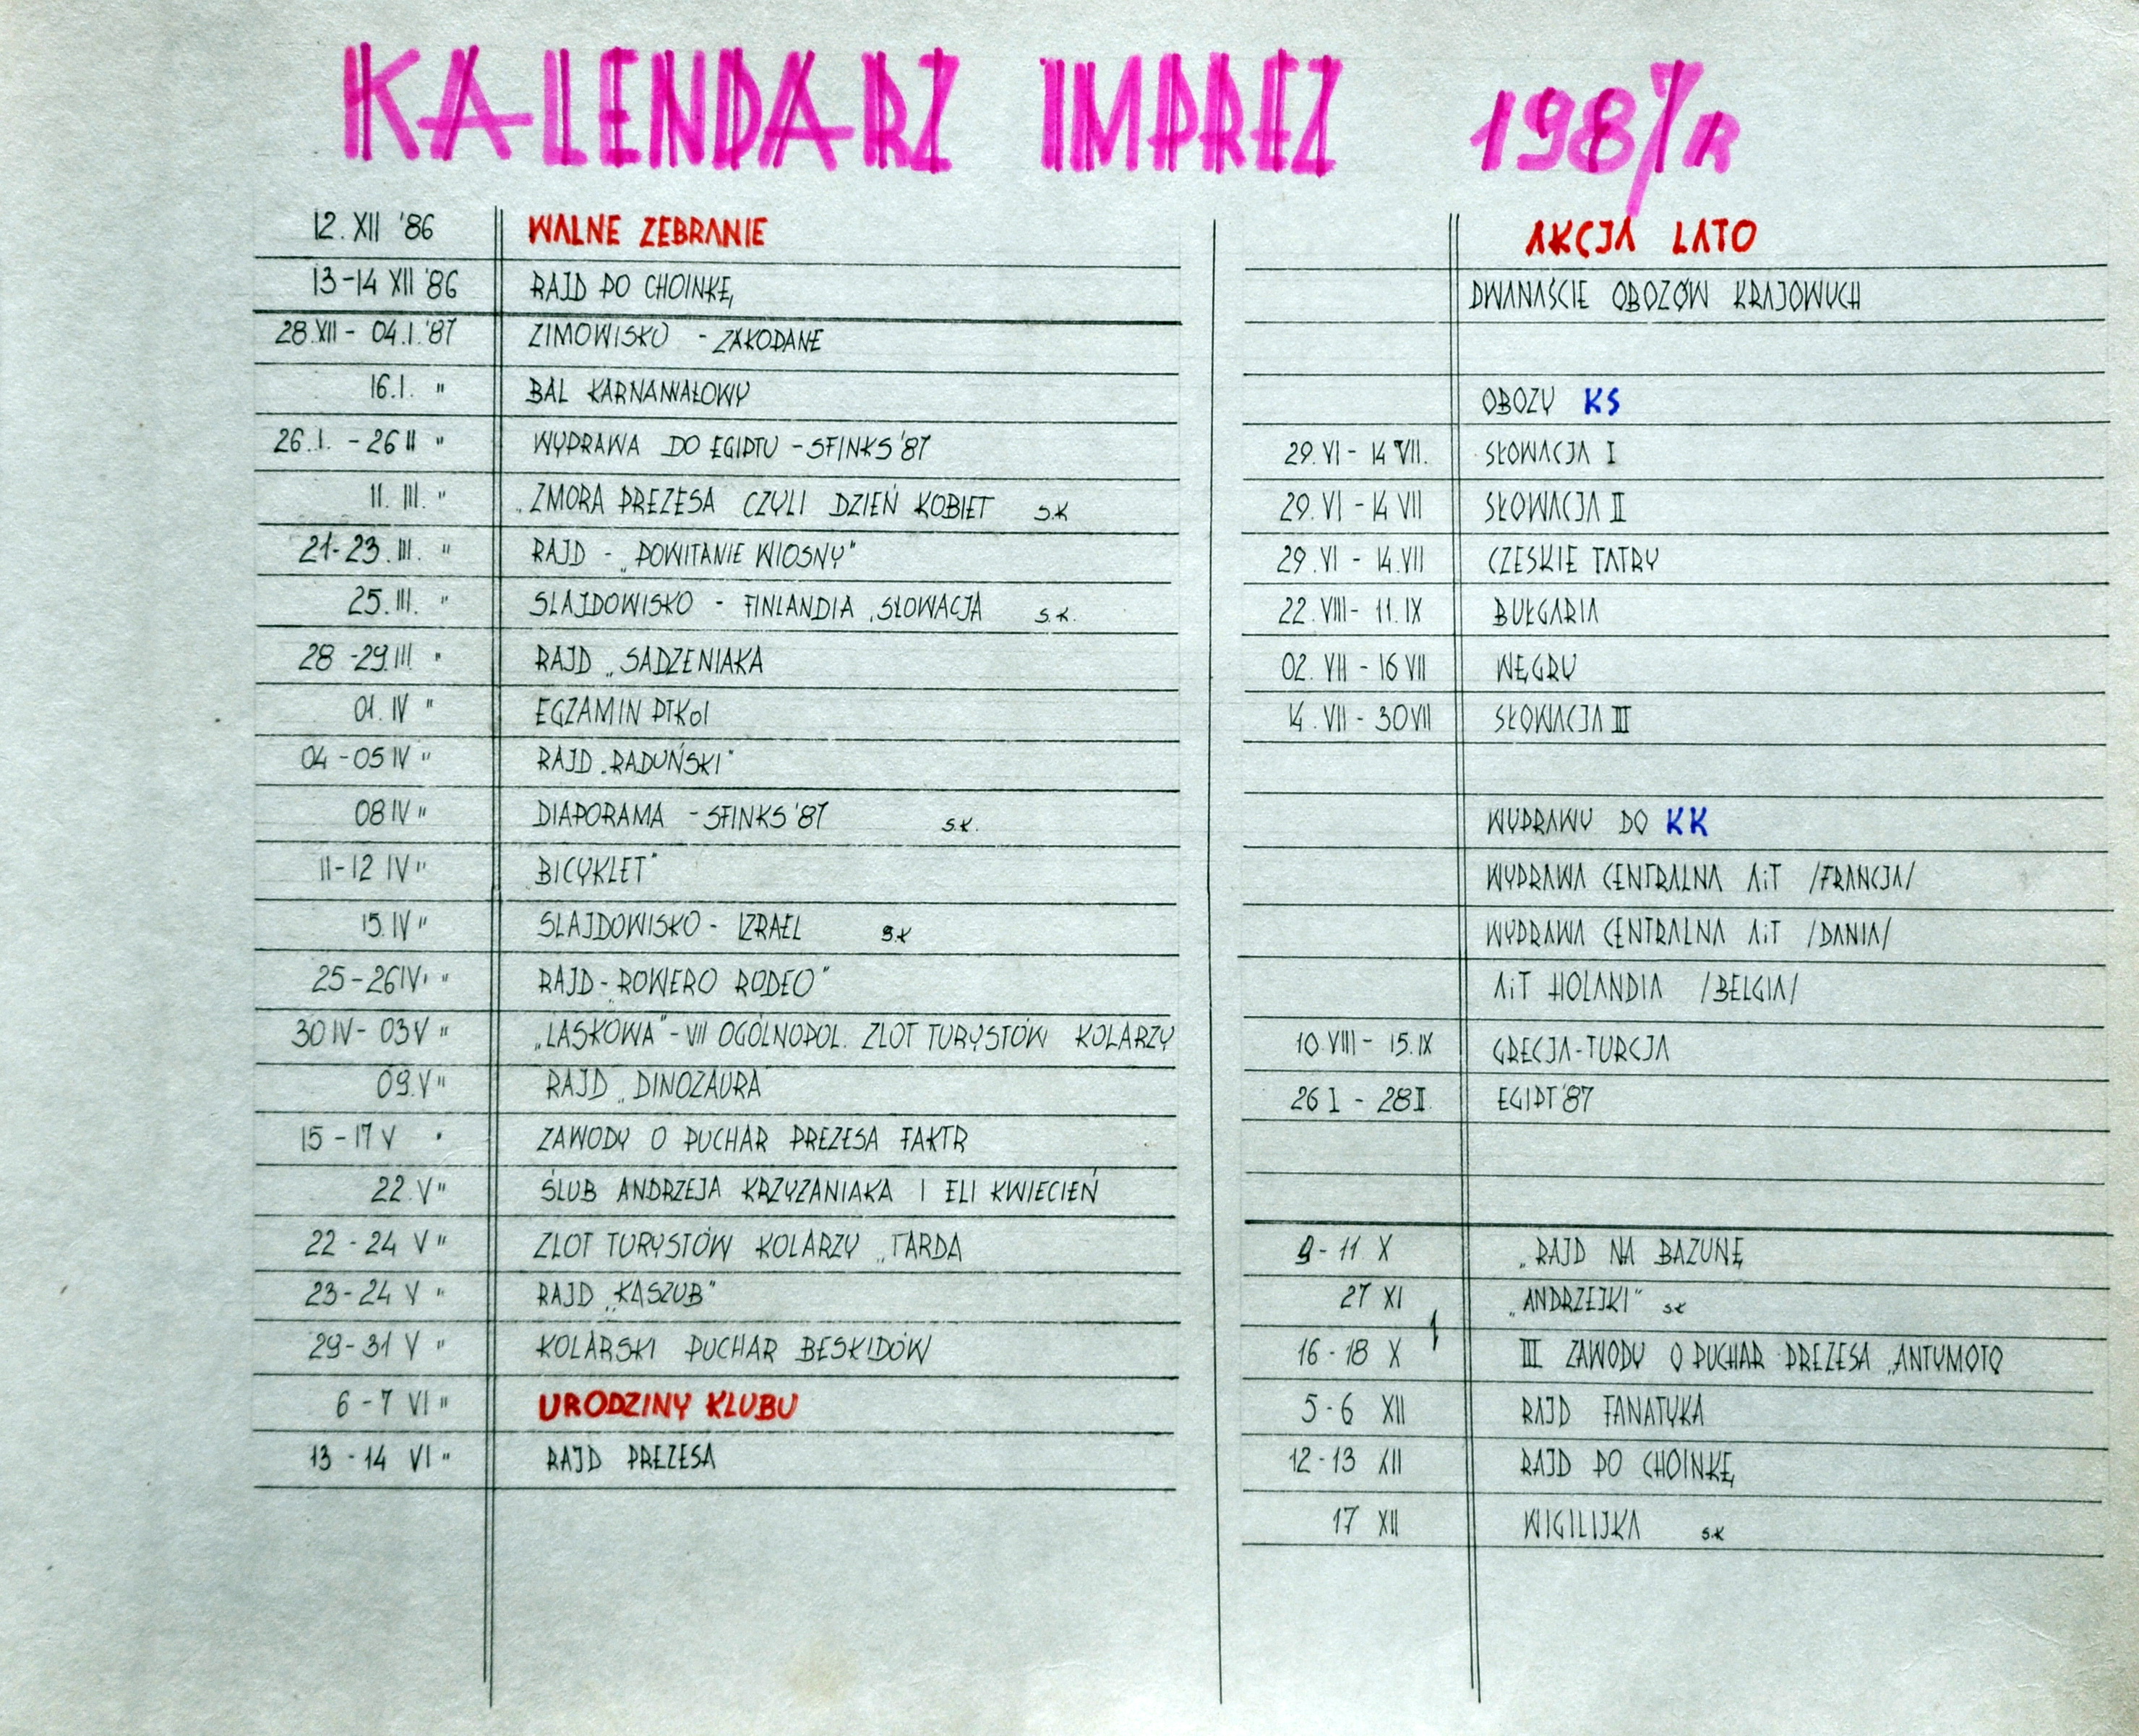 KALENDARZ IMPREZ 1987R
12. XII '86 WALNE ZEBRANIE
13-14 XII '86 RAJD PO CHOINKĘ
28.XII - 04.I.'87 ZIMOWISKO - ZAKOPANE
16.I. " BAL KARNAWAŁOWY
26.I. - 26 II " WYPRAWA DO EGIPTU - SFINKS '87
11. III. " „ZMORA PREZESA CZYLI DZIEŃ KOBIET S.K
21-23.III. " RAJD - „POWITANIE WIOSNY"
25.III. " SLAJDOWISKO - FINLANDIA, SŁOWACJA S.K.
28-29.III " RAJD „SADZENIAKA
01. IV " EGZAMIN PTKol
04-05 IV " RAJD „RADUŃSKI"
08 IV " DIAPORAMA - SFINKS '87 S.K.
11-12 IV " „BICYKLET"
15.IV " SLAJDOWISKO - IZRAEL S.K
25-26 IV " RAJD - „ROWERO RODEO"
30 IV - 03 V " „LASKOWA" - VII OGÓLNOPOL. ZLOT TURYSTÓW KOLARZY
09.V " RAJD „DINOZAURA
15-17 V " ZAWODY O PUCHAR PREZESA FAKTR
22.V " ŚLUB ANDRZEJA KRZYZANIAKA I ELI KWIECIEŃ
22-24 V " ZLOT TURYSTÓW KOLARZY „TARPA
23-24 V " RAJD „KASZUB"
29-31 V " KOLARSKI PUCHAR BESKIDÓW
6-7 VI " URODZINY KLUBU
13-14 VI " RAJD PREZESA
AKCJA LATO
DWANAŚCIE OBOZÓW KRAJOWYCH
OBOZY KS
29.VI - 14 VII. SŁOWACJA I
29.VI - 14 VII SŁOWACJA II
29.VI - 14.VII CZESKIE TATRY
22.VIII - 11.IX BUŁGARIA
02. VII - 16 VII WĘGRY
14.VII - 30 VII SŁOWACJA III
WYPRAWY DO KK
WYPRAWA CENTRALNA AiT /FRANCJA/
WYPRAWA CENTRALNA AiT /DANIA/
AiT HOLANDIA /BELGIA/
10.VIII - 15.IX GRECJA-TURCJA
26 I - 28 II. EGIPT '87
9-11 X „RAJD NA BAZUNĘ
27 XI „ANDRZEJKI" S.K
16-18 X III ZAWODY O PUCHAR PREZESA „ANTYMOTO
5-6 XII RAJD FANATYKA
12-13 XII RAJD PO CHOINKĘ
17 XII WIGILIJKA S.K